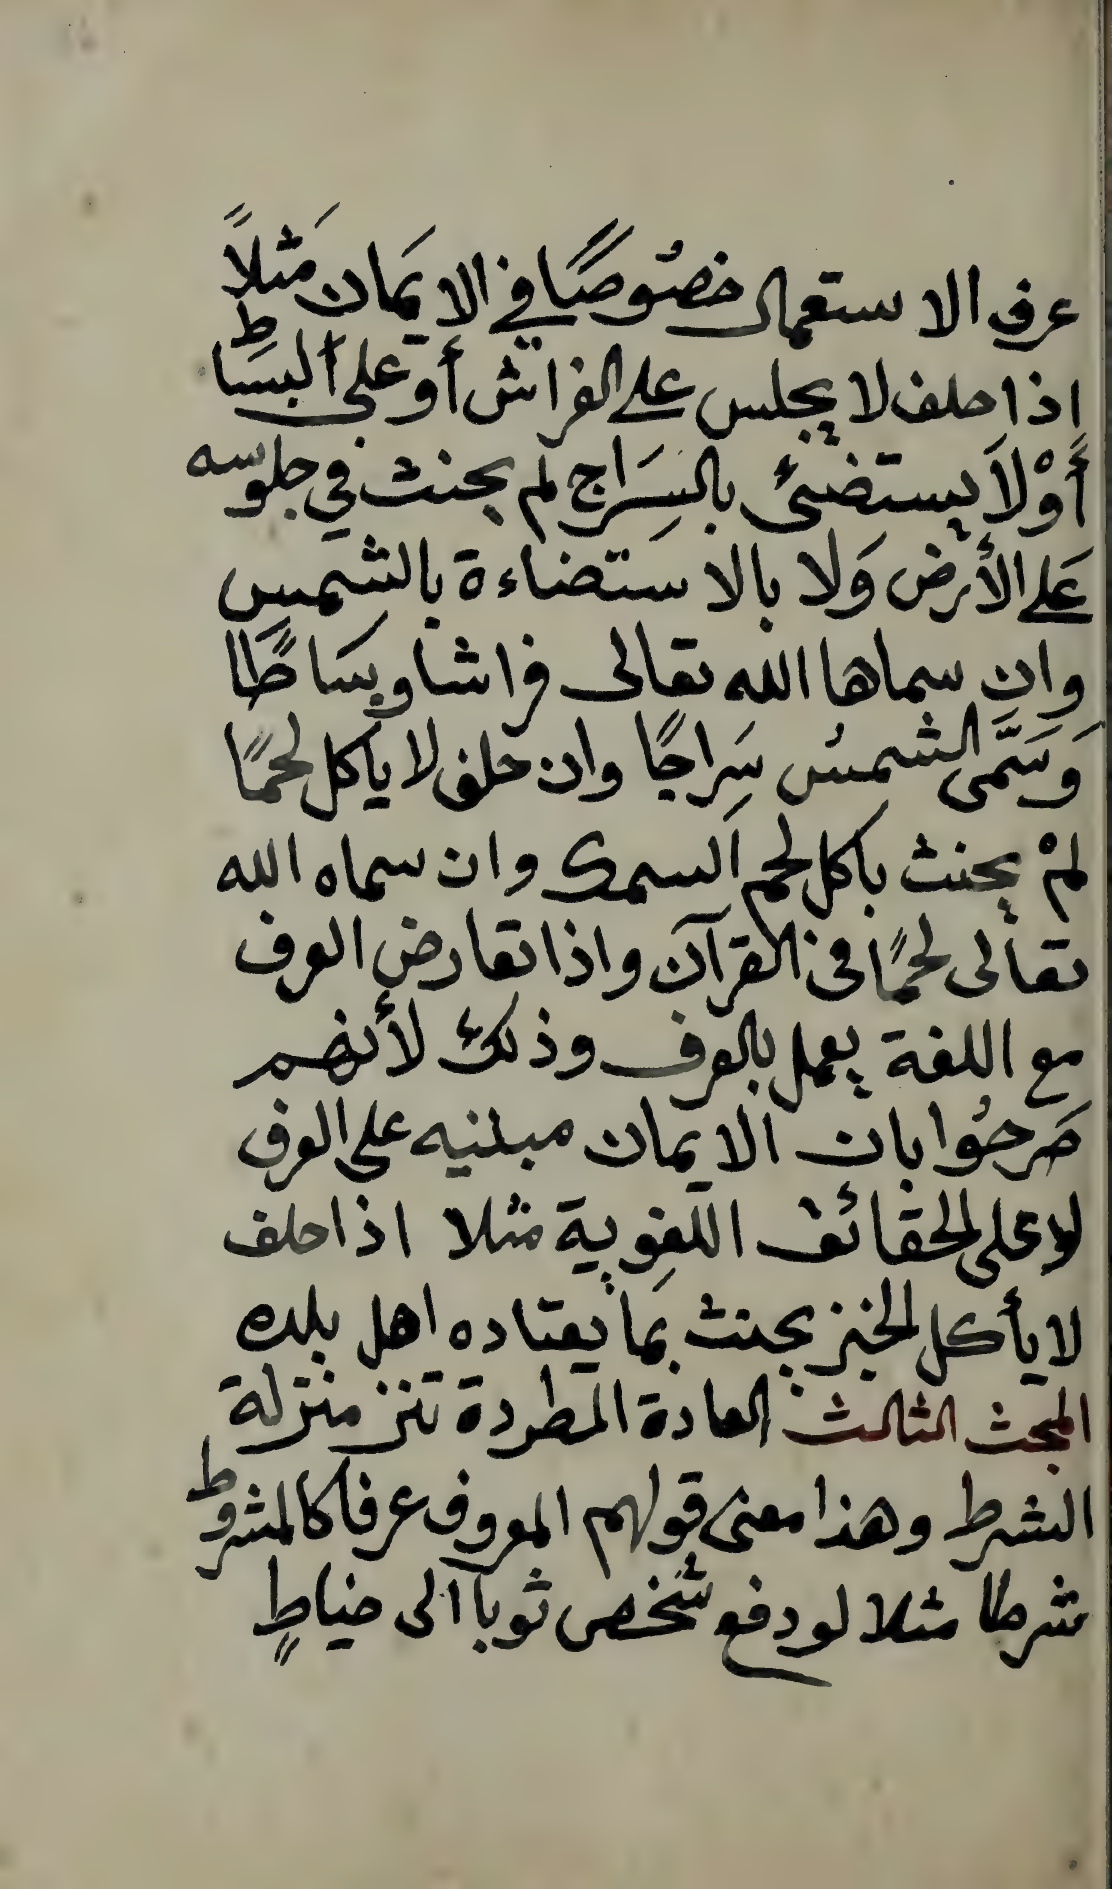 عرف الاستعمال خصُوصًا في الايمَان مَثلاً
اذا حلف لا يجلس على الفراش أو على البسَاط
أوْلاَ يستضئ بالسِرَاج لم يحنث في جلوسه
عَلى الأرض وَلا بالاستضاءة بالشمس
وان سماها الله تعالى فراشا وبسَاطًا
وَسَمَّى الشمسُ سِرَاجًا وان حلف لا ياكل لحمًا
لمْ يحنث باكل لحم السمك وان سماه الله
تعالى لحمًا في القرآن واذا تعارض العرف
مع اللغة يعمل بالعرف وذلك لأنهم
صَرحُوا بان الايمان مبنيه على العرف
لا على الحقائق اللغوية مثلا اذا حلف
لا يأكل الخبز يحنث بما يعتاده اهل بلده
المبحث الثالث العادة المطردة تنز منزلة
الشرط وهذا معنى قولهم المعروف عرفا كالمشروط
شرطا مثلا لو دفع شخص ثوبا الى خياطٍ